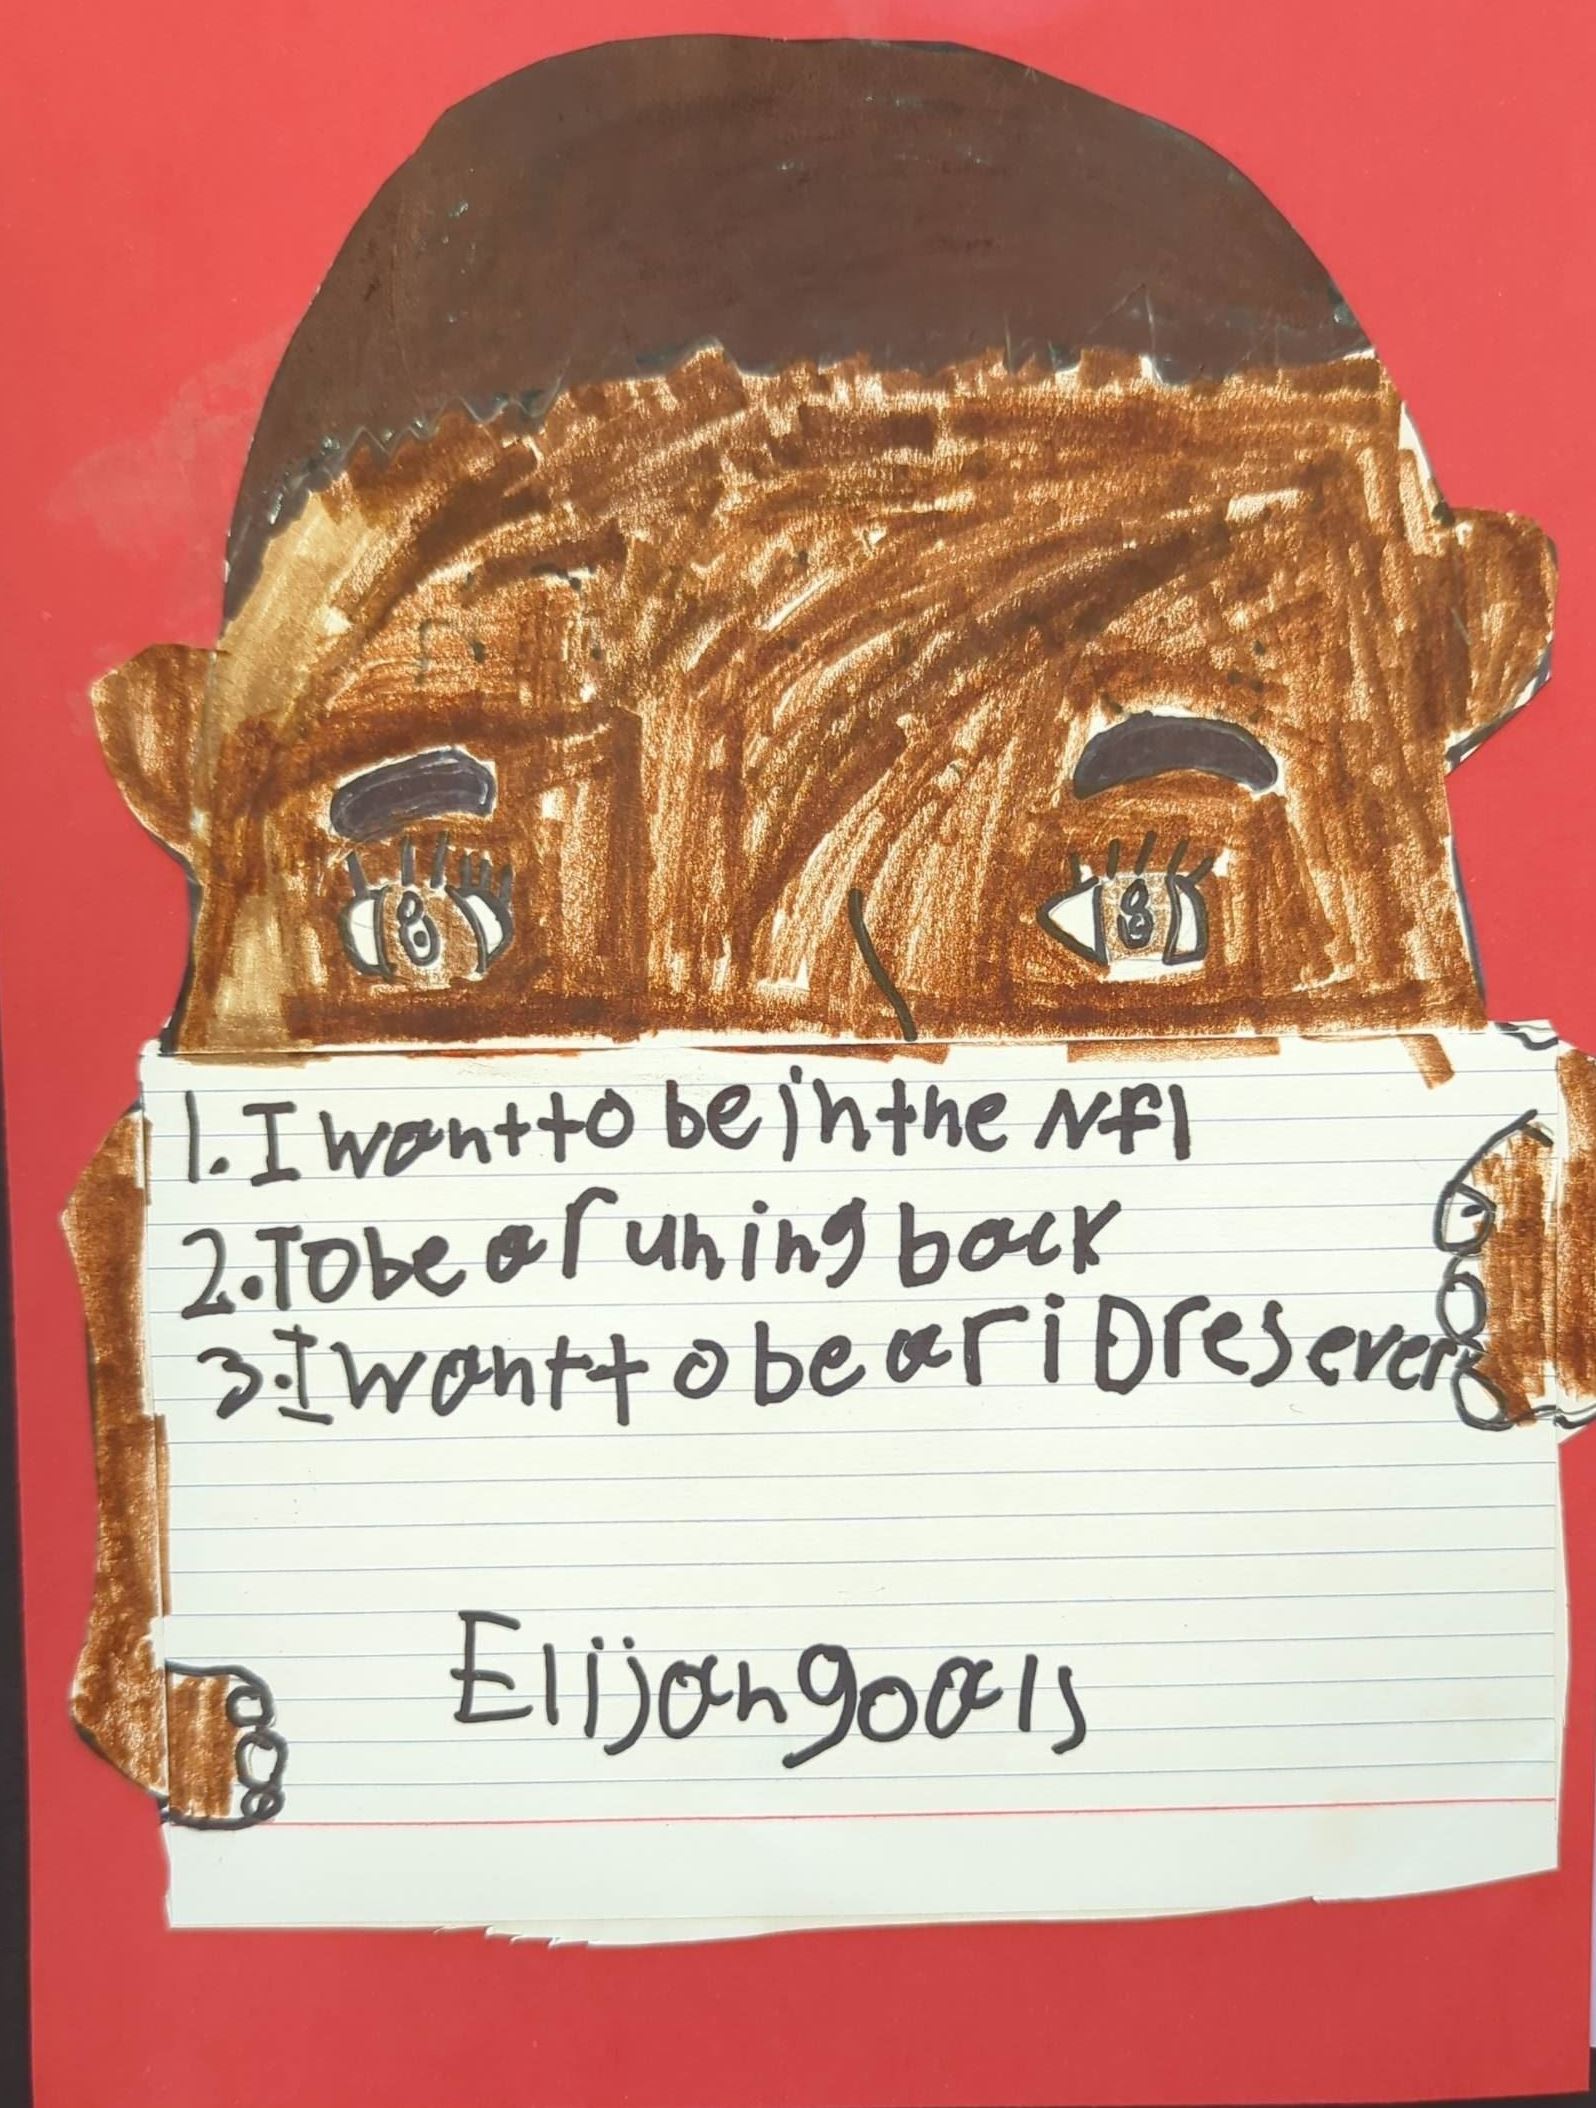 1. I want to be in the Nfl
2. To be a runing back
3. I want to be a riD resever
Elijah goals